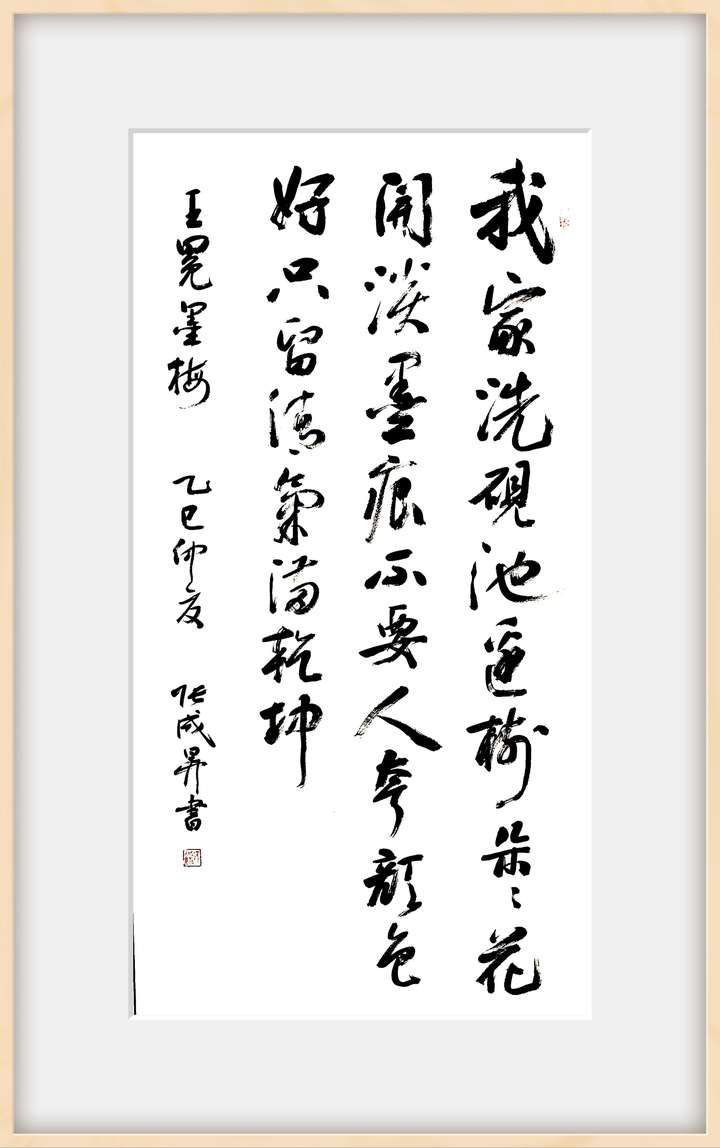 我家洗硯池邊樹朵々花
開淡墨痕不要人夸顏色
好只留清氣滿乾坤
王冕墨梅 乙巳仲夏 張成昇書